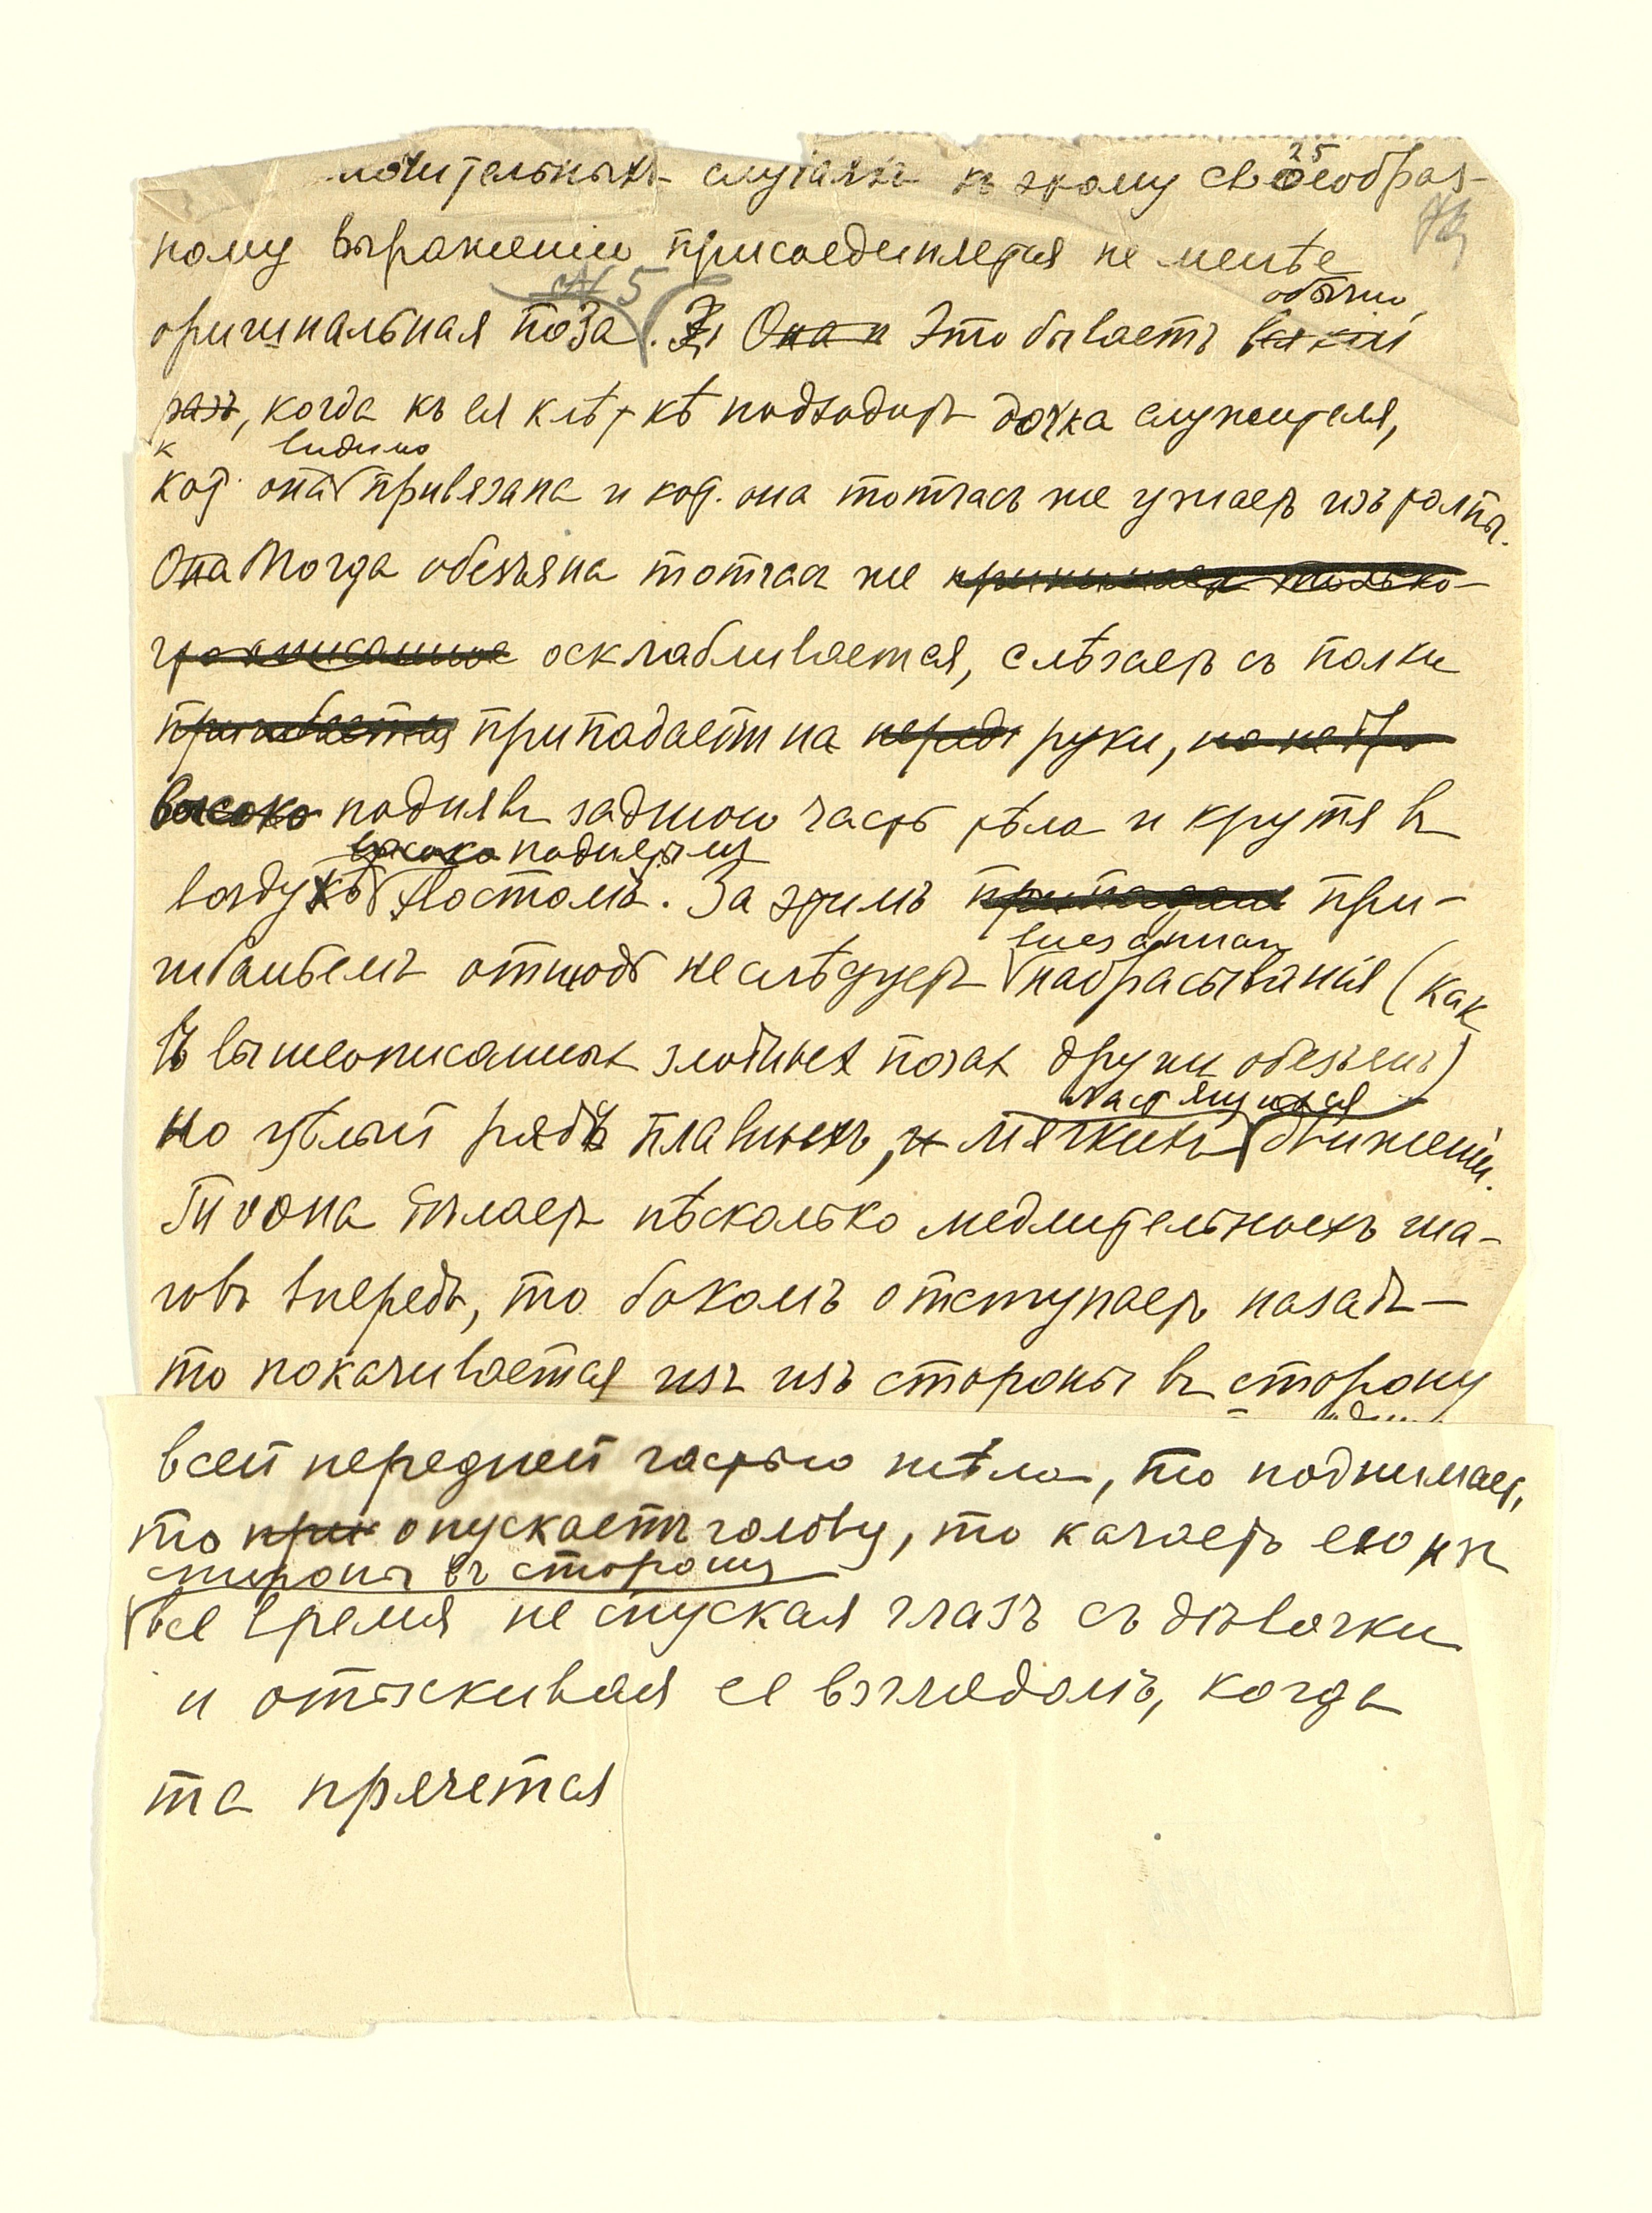 25
лючительныхъ случаяхъ къ этому своеобраз-
ному выраженію присоединяется не менѣе
№ 5
обычно
оригинальная поза. Она Это бываетъ всякій
разъ, когда къ ея клѣткѣ подходитъ дочка служителя,
к видимо
кот. она привязана и кот. она тотчасъ же узнаетъ изъ толпы.
Она Тогда обезьяна тотчасъ же принимаетъ только
осклабливается, слѣзаетъ съ полки
припадаетъ на передн руки,
высоко поднявъ заднюю часть тѣла и крутя въ
высоко поднятымъ
воздухѣ хвостомъ. За этимъ припадан при-
внезапнаго
гибаньемъ отнюдь не слѣдуетъ набрасыванія (какъ
въ вышеописанныхъ злобныхъ позахъ други обезьянъ)
но цѣлый рядъ плавныхъ, и мягкихъ движеній.
То она дѣлаетъ нѣсколько медлительныхъ ша-
говъ впередъ, то бокомъ отступаетъ назадъ —
то покачивается изъ изъ стороны въ сторону
всей передней частью тѣла, то поднимает,
то при опускаетъ голову, то качаетъ ею изъ
стороны въ сторону
все время не спуская глазъ съ дѣвочки
и отыскивая ее взглядомъ, когда
та прячется